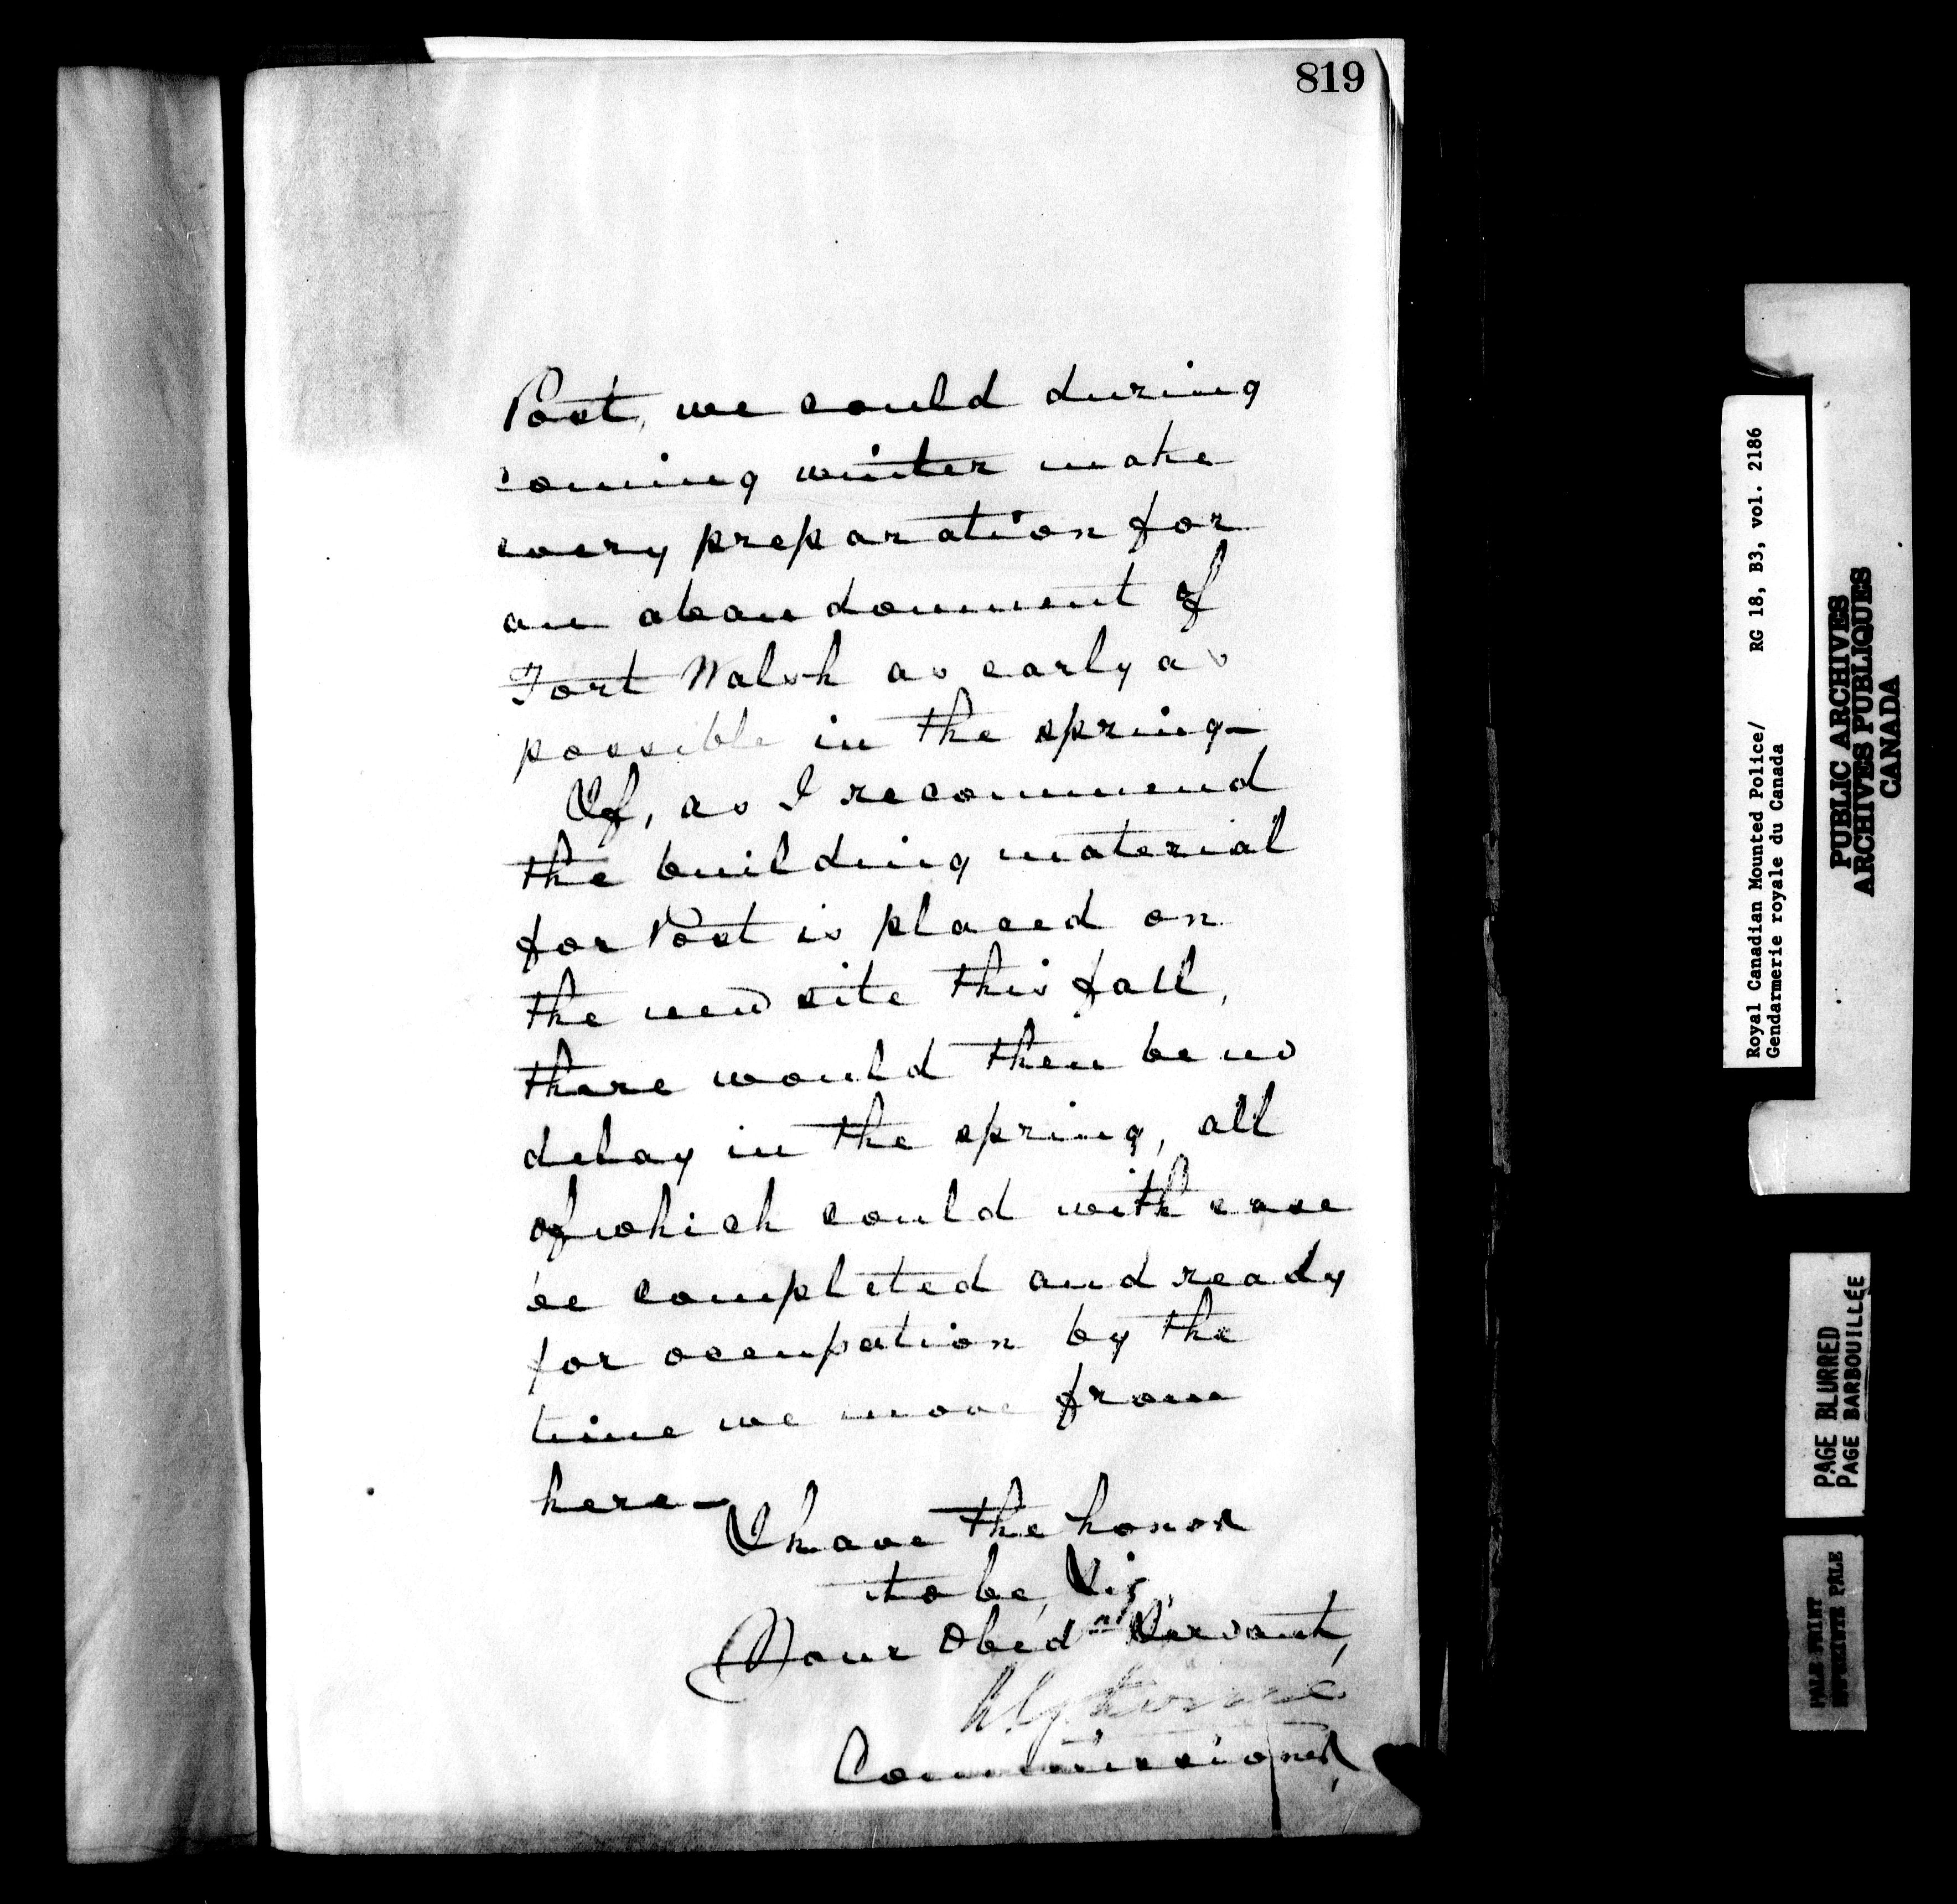 819
Post, we could during
coming winter make
every preparation for
an abandonment of
Fort Walsh as early as
possible in the spring—
If, as I recommend
the building material
for Post is placed on
the new site this fall,
there would then be no
delay in the spring, all
of which could with ease
be completed and ready
for occupation by the
time we move from
here—
I have the honor
to be, Sir,
Your Obednt Servant,
Commissioner,
Royal Canadian Mounted Police/ RG 18, B3, vol. 2186
Gendarmerie royale du Canada
PUBLIC ARCHIVES
ARCHIVES PUBLIQUES
CANADA
PAGE BLURRED
PAGE BARBOUILLÉE
PALE PRINT
PALE